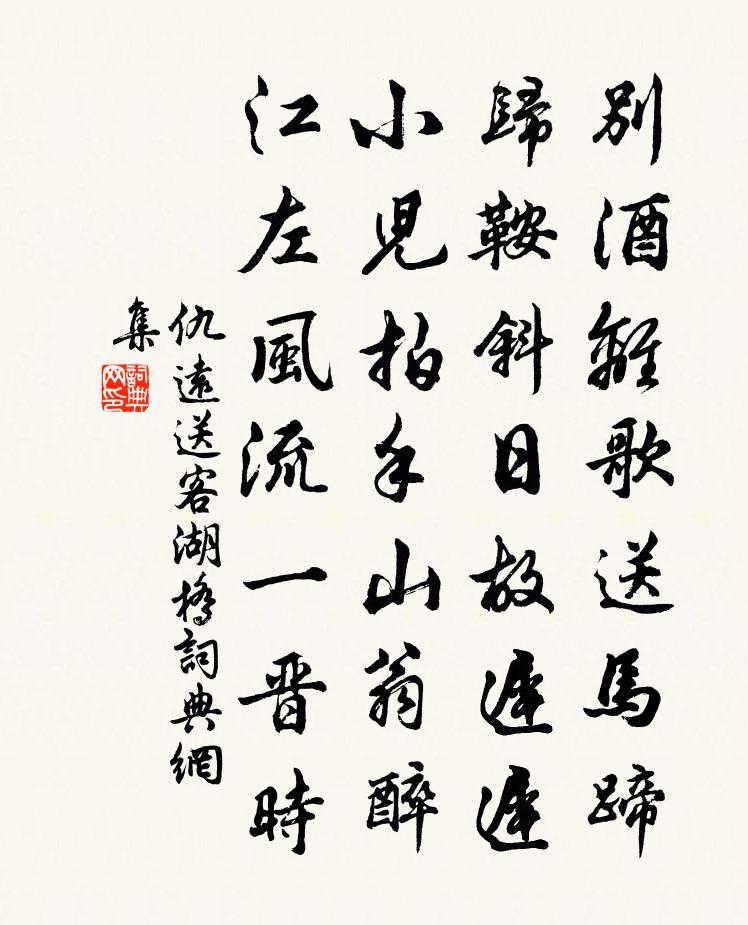 別酒離歌送馬蹄
歸鞍斜日故遲遲
小児拍手山翁醉
江左風流一晉時
仇遠送客湖橋詞典網
集
詞典網印